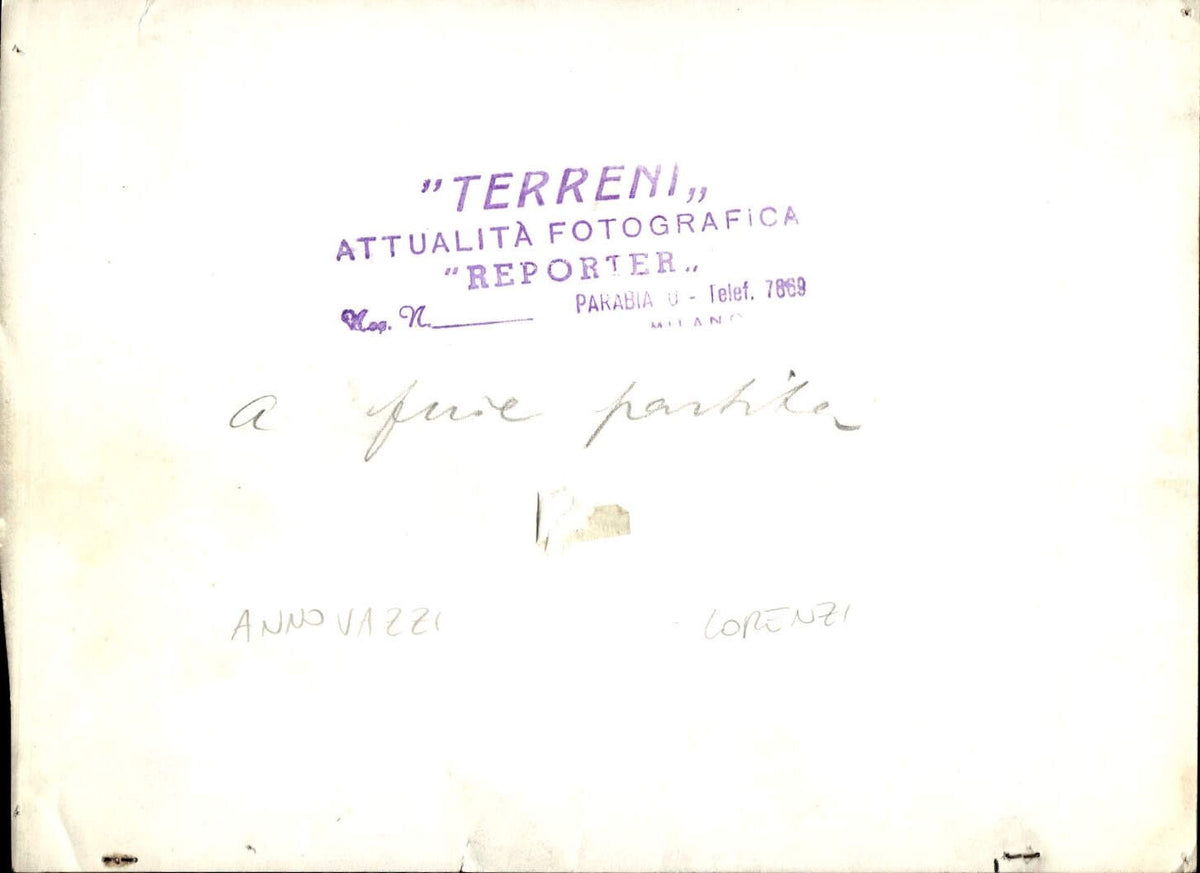 "TERRENI„
ATTUALITÀ FOTOGRAFICA
"REPORTER„
Neg. N.
PARABIA - Telef. 7869
MILANO
a fine partita
ANNOVAZZI
LORENZI